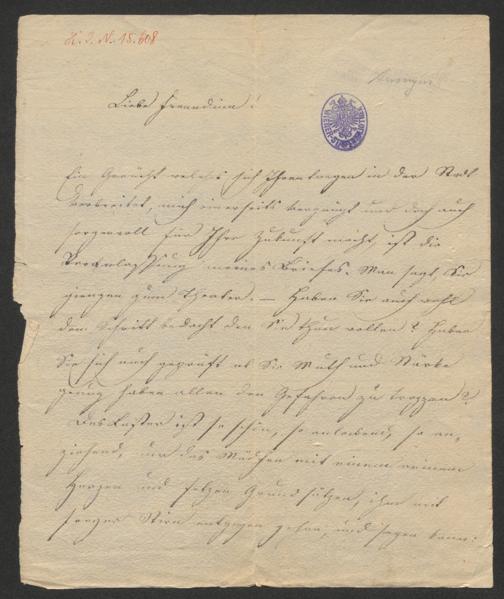 H. I. N. 15.608
Liebe Freundinn!
Ein Gerücht welches sich Ihrentwegen in der Stadt
verbreitet, mich einerseits vergnügt und doch auch
sorgenvoll für Ihre Zukunft macht, ist die
Veranlassung meines Briefes. Man sagt, Sie
giengen zum Theater. — Haben Sie auch wohl
den Schritt bedacht den Sie thun wollen? Haben
Sie sich auch geprüft ob Sie Muth und Stärke
genug haben allen den Gefahren zu trozzen?
Das Laster ist so schön, so einladend, so an-
ziehend, nur das Mädchen mit einem reinem
Herzen und festen Grundsätzen, ihm mit
Stirn entgegen gehen, und sagen kann: